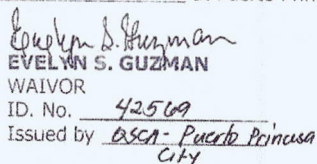 Evelyn S. Guzman
EVELYN S. GUZMAN
WAIVOR
ID. No. 42569
Issued by OSCA - Puerto Princesa
City